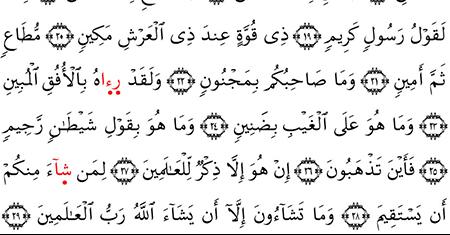 لَقَوْلُ رَسُولٍ كَرِيمٍ ﴿١٩﴾ ذِى قُوَّةٍ عِندَ ذِى الْعَرْشِ مَكِينٍ ﴿٢٠﴾ مُّطَاعٍ
ثَمَّ أَمِينٍ ﴿٢١﴾ وَمَا صَاحِبُكُم بِمَجْنُونٍ ﴿٢٢﴾ وَلَقَدْ رِءَاهُ بِالْأُفُقِ الْمُبِينِ
﴿٢٣﴾ وَمَا هُوَ عَلَى الْغَيْبِ بِضَنِينٍ ﴿٢٤﴾ وَمَا هُوَ بِقَوْلِ شَيْطَٰنٍ رَّجِيمٍ
﴿٢٥﴾ فَأَيْنَ تَذْهَبُونَ ﴿٢٦﴾ إِنْ هُوَ إِلَّا ذِكْرٌ لِّلْعَالَمِينَ ﴿٢٧﴾ لِمَن شِآءَ مِنكُمْ
أَن يَسْتَقِيمَ ﴿٢٨﴾ وَمَا تَشَآءُونَ إِلَّآ أَن يَشَآءَ اللَّهُ رَبُّ الْعَالَمِينَ ﴿٢٩﴾